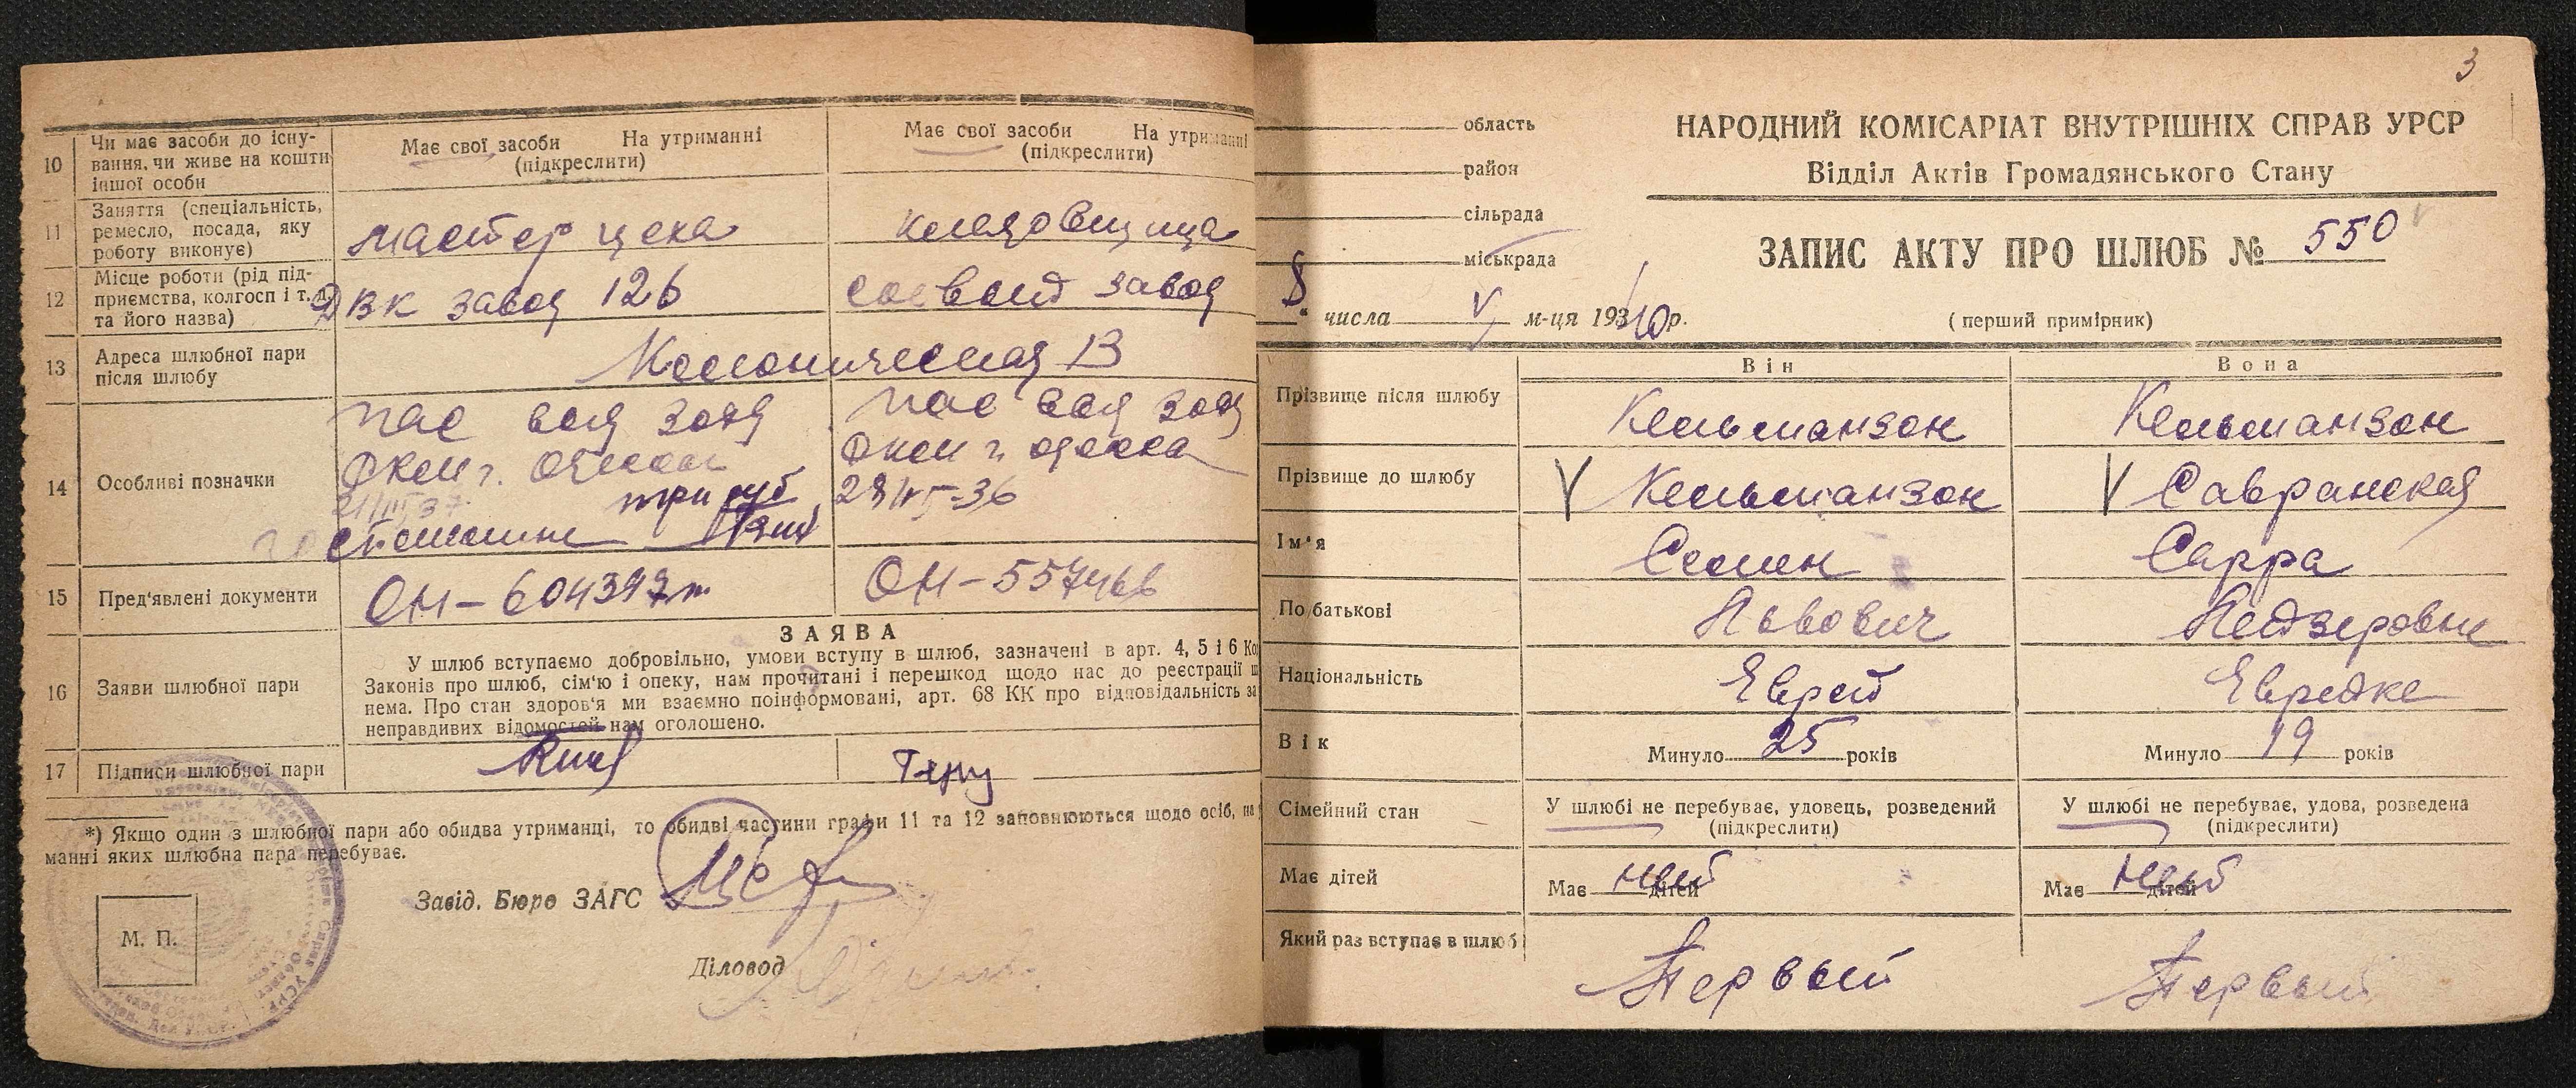 10 Чи має засоби до існу-
вання, чи живе на кошти
іншої особи
Має свої засоби На утриманні
(підкреслити)
Має свої засоби На утриманні
(підкреслити)
11 Заняття (спеціальність,
ремесло, посада, яку
роботу виконує)
мастер цеха
кладовщица
12 Місце роботи (рід під-
приємства, колгосп і т. д.
та його назва)
ДВК завод 126
завод
13 Адреса шлюбної пари
після шлюбу
13
14 Особливі позначки
пас
г. Одессы
21/III 37
три руб
пас
г. Одесса
36
15 Пред'явлені документи
ОН – 604397
ОН – 557466
ЗАЯВА
16 Заяви шлюбної пари
У шлюб вступаємо добровільно, умови вступу в шлюб, зазначені в арт. 4, 5 і 6 Ко
Законів про шлюб, сім'ю і опеку, нам прочитані і перешкод щодо нас до реєстрації ш
нема. Про стан здоров'я ми взаємно поінформовані, арт. 68 КК про відповідальність за
неправдивих відомостей нам оголошено.
17 Підписи шлюбної пари
*) Якщо один з шлюбної пари або обидва утриманці, то обидві частини графи 11 та 12 заповнюються щодо осіб, на
манні яких шлюбна пара перебуває.
Завід. Бюро ЗАГС
М. П.
Діловод
3
область
район
сільрада
міськрада
НАРОДНИЙ КОМІСАРІАТ ВНУТРІШНІХ СПРАВ УРСР
Відділ Актів Громадянського Стану
ЗАПИС АКТУ ПРО ШЛЮБ № 550
8 числа V м-ця 1940 р.
(перший примірник)
Він Вона
Прізвище після шлюбу Кельманзон Кельманзон
Прізвище до шлюбу V Кельманзон V Савранская
Ім'я Семен Сарра
По батькові Львович Лейзеровна
Національність Еврей Еврейка
Вік Минуло 25 років Минуло 19 років
Сімейний стан
У шлюбі не перебуває, удовець, розведений
(підкреслити)
У шлюбі не перебуває, удова, розведена
(підкреслити)
Має дітей Має нет дітей Має нет дітей
Який раз вступає в шлюб Первый Первый